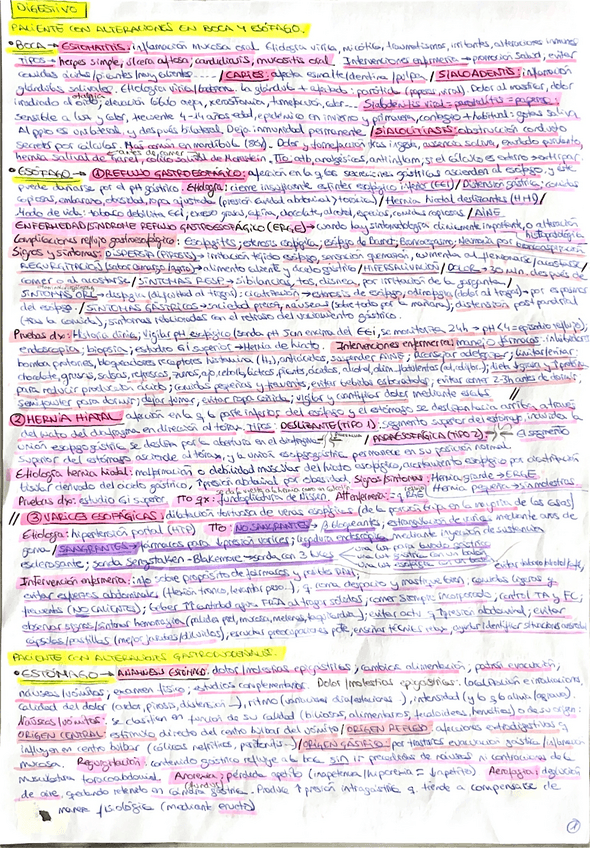 DIGESTIVO
PACIENTE CON ALTERACIONES EN BOCA Y ESÓFAGO.
• BOCA → ESTOMATITIS: inflamación mucosa oral. Etiología vírica, micótica, traumatismos, irritantes, alteraciones inmunes
Tipos → herpes simple, úlcera aftosa, candidiasis, mucositis oral. Intervenciones enfermería → promoción salud, evitar
comidas ácidas/picantes/muy calientes / CARIES: afecta esmalte/dentina/pulpa / SIALOADENITIS: inflamación
glándulas salivales. Etiología vírica/bacteriana. La glándula + afectada: parótida (paperas viral). Dolor al masticar, dolor
irradiado al oído, elevación lóbulo oreja, xerostomía, tumefacción, calor Sialodenitis viral = parotiditis = paperas:
sensible a luz y calor, frecuente 4-14 años edad, epidémico en invierno y primavera, contagio + habitual: gotas saliva
Al ppio es unilateral, y después bilateral. Deja inmunidad permanente / SIALOLITIASIS: obstrucción conducto
secretor por cálculos. Más común en mandíbula (80%). Dolor y tumefacción tras ingesta, ausencia saliva, exudado purulento,
hernia salival de Garel, cólico salival de Morestin. Tto: atb, analgésicos, antiinflam, si el cálculo es externo → extirpar.
• ESÓFAGO → ① REFLUJO GASTROESOFÁGICO: afección en la q las secreciones gástricas ascienden al esófago, y éste
puede dañarse por el pH gástrico. Etiología: cierre insuficiente esfínter esofágico inferior (EEI) / Distensión gástrica: comidas
copiosas, embarazo, obesidad, ropa ajustada (presión cavidad abdominal > torácica) / Hernia hiatal deslizantes (HH) /
Modo de vida: tabaco debilita EEI, exceso grasa, cafeína, chocolate, alcohol, especias, comidas copiosas / AINE
ENFERMEDAD/SÍNDROME REFLUJO GASTROESOFÁGICO (ERGE) → cuando hay sintomatología clínicamente importante, o alteración histopatológica
Complicaciones reflujo gastroesofágico: Esofagitis, estenosis esofágica, esófago de Barret, Broncoespasmo, Neumonía por broncoaspiración
Signos y síntomas: DISPEPSIA (PIROSIS) → irritación tejido esófago, sensación quemazón, aumenta al flexionarse/acostarse /
REGURGITACIÓN (sabor amargo/agrio) → alimento caliente y ácido gástrico / HIPERSALIVACIÓN / DOLOR → 30 min. después de
comer o al acostarse / SÍNTOMAS RESP → sibilancias, tos, disnea, por irritación de la garganta /
SÍNTOMAS ORL → disfagia (dificultad al tragar); cicatrización → estenosis de esófago, odinofagia (dolor al tragar) → por espasmos
del esófago / SÍNTOMAS GÁSTRICOS → saciedad precoz, náuseas (sobre todo por la mañana), distensión postprandial
(tras la comida), síntomas relacionados con el retraso del vaciamiento gástrico.
Pruebas dx: Historia clínica, vigilar pH esofágico (sonda pH 5cm encima del EEI, se monitoriza 24h → pH<4 = episodio reflujo),
endoscopia, biopsia, estudio GI superior → Hernia de hiato. Intervenciones enfermería: manejo fármacos: inhibidores
bomba protones, bloqueadores receptores histamina (H2), antiácidos, suspender AINE; aconsejar adelgazar; limitar/eliminar:
chocolate, grasas, salsas, especias, frutos, ajo, cebolla, lácteos, picante, ácidos, alcohol, dieta
para reducir producción ácido; comidas pequeñas y frecuentes, evitar bebidas carbonatadas, evitar comer 2-3h antes de dormir,
semifowler para dormir; dejar fumar, evitar ropa ceñida; vigilar y cuantificar dolor mediante escala //
② HERNIA HIATAL: afección en la q parte inferior del esófago y el estómago se desplazan hacia arriba, a través
del hiato del diafragma en dirección al tórax. TIPOS: DESLIZANTE (TIPO 1): segmento superior del estómago, incluida la
unión esofagogástrica, se desliza por la abertura en el diafragma / PARAESOFÁGICA (TIPO 2) → el segmento
superior del estómago asciende al tórax, y la unión esofagogástrica permanece en su posición normal
Etiología hernia hiatal: malformación o debilidad muscular del hiato esofágico, acortamiento esófago por cicatrización
tisular derivado del ácido gástrico, ↑presión abdominal por obesidad. Signos/síntomas: Hernia grande → ERGE
Hernia pequeña → asintomáticas
Pruebas dx: estudio GI superior. Tto qx: funduplicatura de Nissen. Att enfermería: = q ERGE
// ③ VARICES ESOFÁGICAS: dilatación tortuosa de venas esofágicas (de la porción inf en la mayoría de los casos)
Etiología: hipertensión portal (HTP) Tto: NO SANGRANTES → β bloqueantes, estrangulación de varices mediante aros de
goma / SANGRANTES → fármacos para ↓presión varices, ligadura endoscópica, mediante inyección de sustancias
esclerosante, sonda Sengstaken-Blakemore → sonda con 3 luces
Intervención enfermería: info sobre propósito de fármacos, y posibles RAM,
evitar esfuerzos abdominales (flexión tronco, levantar peso...), q coma despacio y mastique bien, comidas ligeras y
frecuentes (NO CALIENTES), beber ↑cantidad agua FRÍA al tragar sólidos, comer siempre incorporado, control TA y FC,
observar signos/síntomas hemorragia (palidez piel, mucosa, melenas, taquicardia...), evitar activ q ↑presión abdominal, evitar
cápsulas/pastillas (mejor jarabes/diluidos), escuchar preocupaciones pte, enseñar técnicas relax, ayudar identificar situaciones
PACIENTE CON ALTERACIONES GASTROINTESTINALES.
• ESTÓMAGO → ANAMNESIS ESTÓMAGO: dolor/molestias epigástrias, cambios alimentación, patrón evacuación,
náuseas/vómitos, examen físico; estudios complementarios. Dolor/molestias epigástrias: localización e irradiaciones,
calidad del dolor (ardor, pirosis, distensión...), ritmo (variaciones día/estaciones...), intensidad (y lo q lo alivia/agrava).
Náuseas/vómitos: se clasifican en función de su calidad (biliosos, alimentarios, fecaloideos, hemáticos) o de su origen:
ORIGEN CENTRAL: estímulo directo del centro bulbar del vómito / ORIGEN REFLEJO: afecciones extradigestivas q
influyen en centro bulbar (cólicos nefríticos, peritonitis...) / ORIGEN GÁSTRICO: por trastornos evacuación gástrica/inflamación
mucosa. Regurgitación: contenido gástrico refluye a la boca SIN ir precedidas de náuseas ni contracciones de la
musculatura toracoabdominal. Anorexia: pérdida apetito (inapetencia/hiporexia = ↓apetito) Aerofagia: deglución
de aire, quedando retenido en cámara gástrica. Produce ↑presión intragástrica q tiende a compensarse de
(fundus)
manera fisiológica (mediante eructo)
①